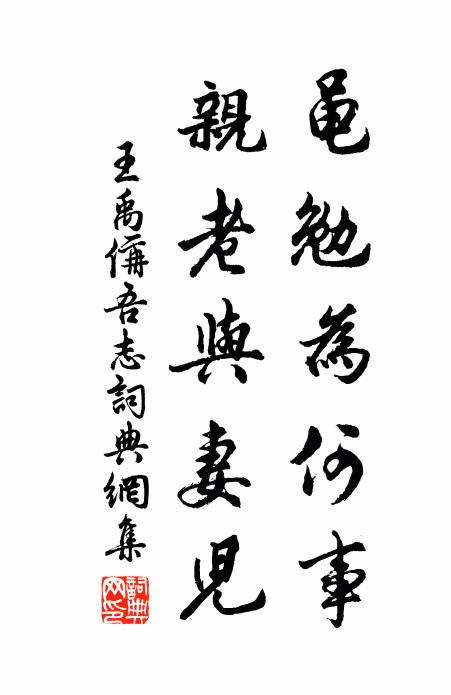 黽勉為何事
親老與妻兒
王禹偁吾志詞典網集
詞典網印